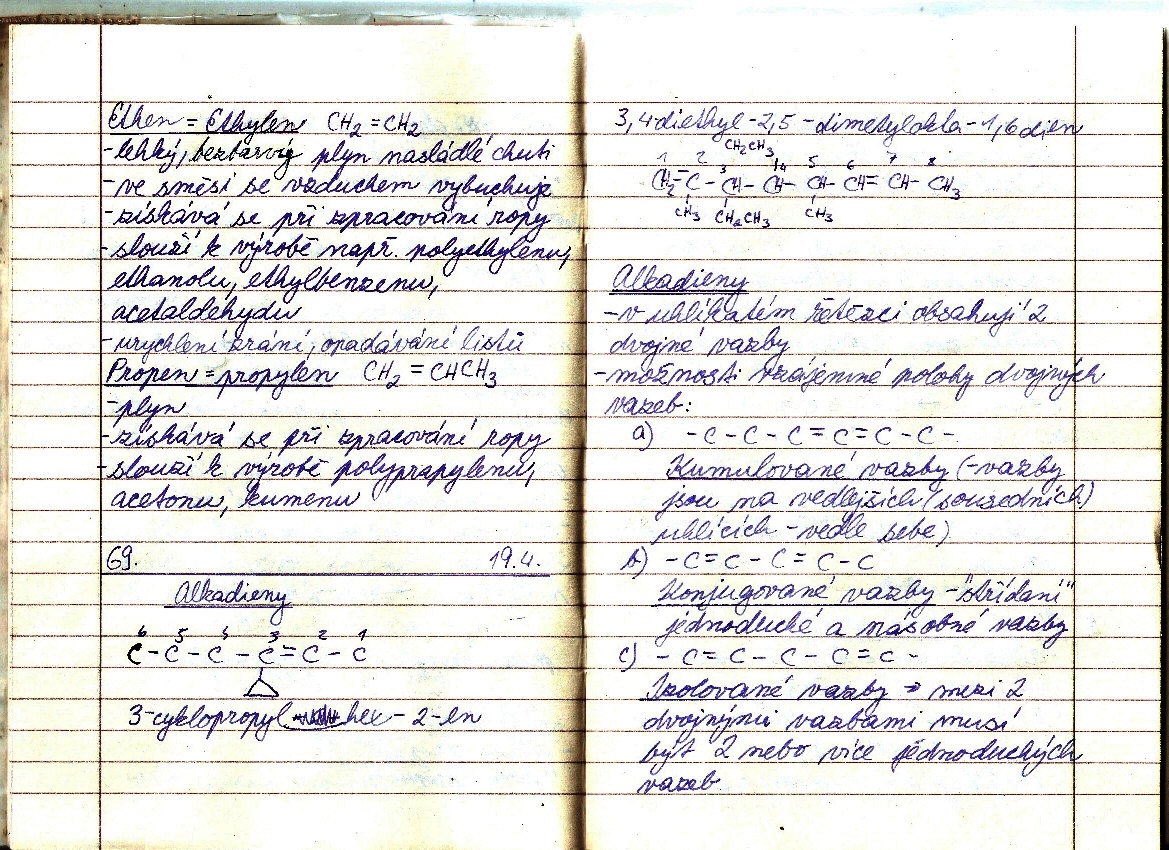 Ethen = Ethylen CH2 = CH2
- lehký, bezbarvý plyn nasládlé chuti
- ve směsi se vzduchem vybuchuje
- získává se při zpracování ropy
- slouží k výrobě např. polyethylenu,
ethanolu, ethylbenzenu,
acetaldehydu
- urychlení zrání, opadávání listů
Propen = propylen CH2 = CHCH3
- plyn
- získává se při zpracování ropy
- slouží k výrobě polypropylenu,
acetonu, kumenu
69. 19.4.
Alkadieny
6 5 4 3 2 1
C - C - C - C = C - C
3-cyklopropyl hex - 2-en
3,4diethyl-2,5-dimetylokta-1,6dien
CH2CH3
1 2 3 4 5 6 7 8
CH2=C - CH - CH - CH - CH = CH - CH3
CH3 CH2CH3 CH3
Alkadieny
- v uhlíkatém řetězci obsahují 2
dvojné vazby
- možnosti vzájemné polohy dvojných
vazeb:
a) - C - C - C = C = C - C -
Kumulované vazby (- vazby
jsou na vedlejších (sousedních)
uhlících - vedle sebe)
b) - C = C - C = C - C
Konjugované vazby - "střídaní"
jednoduché a násobné vazby
c) - C = C - C - C = C -
Izolované vazby → mezi 2
dvojnými vazbami musí
být 2 nebo více jednoduchých
vazeb